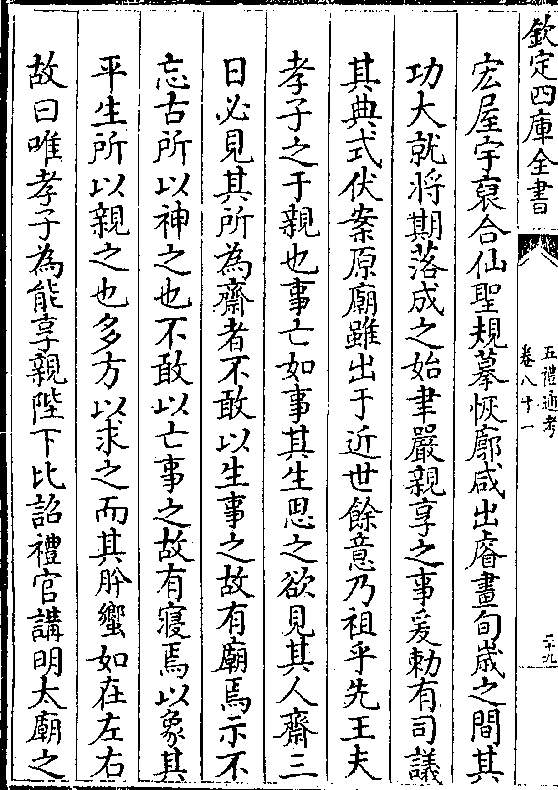 欽定四庫全書
五禮通考
卷八十一
二十九
宏屋宇裒合仙聖規摹恢廓咸出睿畫旬歲之間其
功大就將期落成之始聿嚴親享之事爰勅有司議
其典式伏案原廟雖出于近世餘意乃祖乎先王夫
孝子之于親也事亡如事其生思之欲見其人齋三
日必見其所為齋者不敢以生事之故有廟焉示不
忘古所以神之也不敢以亡事之故有寢焉以象其
平生所以親之也多方以求之而其肸蠁如在左右
故曰唯孝子為能享親陛下比詔禮官講明太廟之